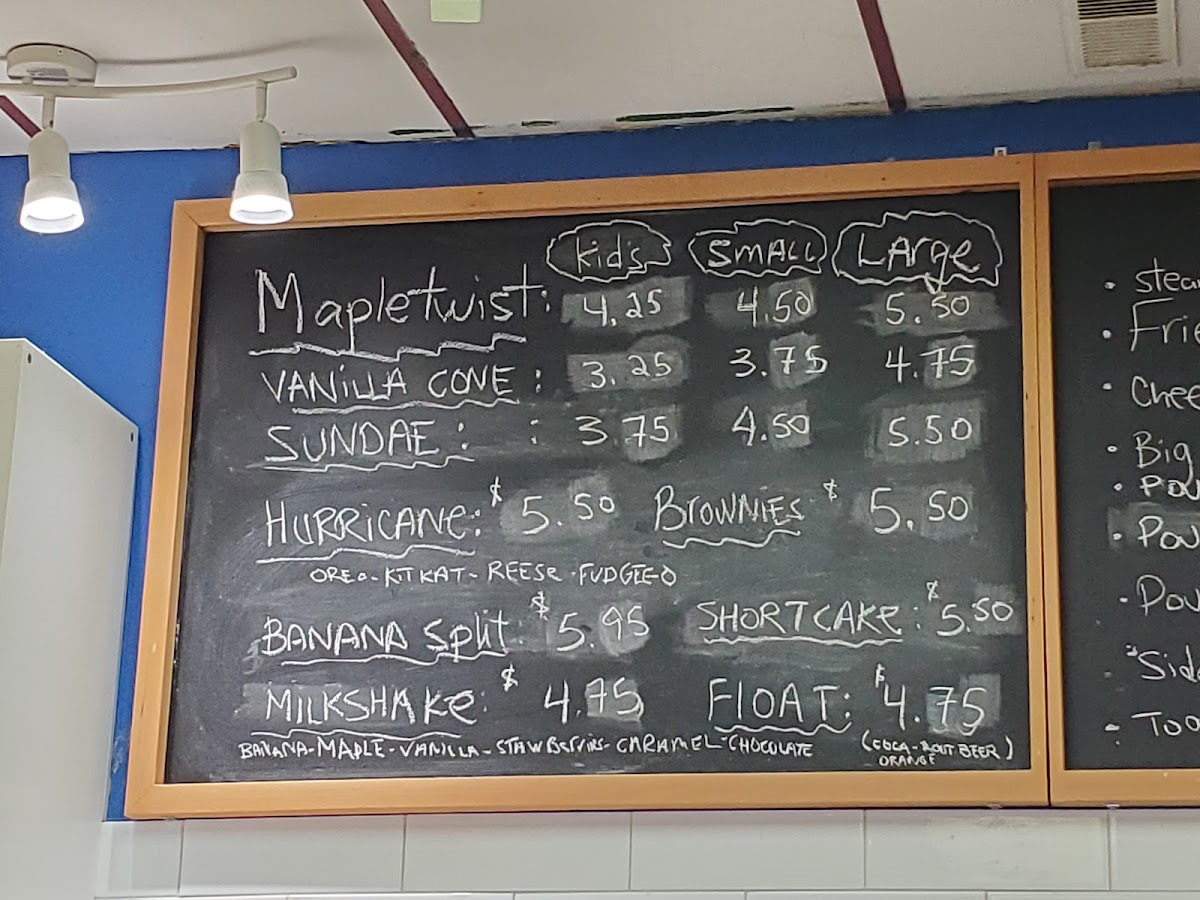 Kid's SMALL LArge
Mapletwist: 4.25 4.50 5.50
VANiLLA CONE: 3.25 3.75 4.75
SUNDAE: : 3.75 4.50 5.50
HURRICANE: $5.50 BrOWNIES $5.50
OREO-KITKAT-REESE-FUDGEE-O
BANANA Split: $5.95 SHORTCAKE: $5.50
MILKSHAKe: $4.75 FlOAT: $4.75
BANANA-MAPLE-VANILLA-STAWBerries-CARAMEL-CHOCOLATE (COCA-ROUT BEER)
ORANGE
• Stea
• Frie
• Chee
• Big
• Pou
• Pou
• Pou
• Side
• Too